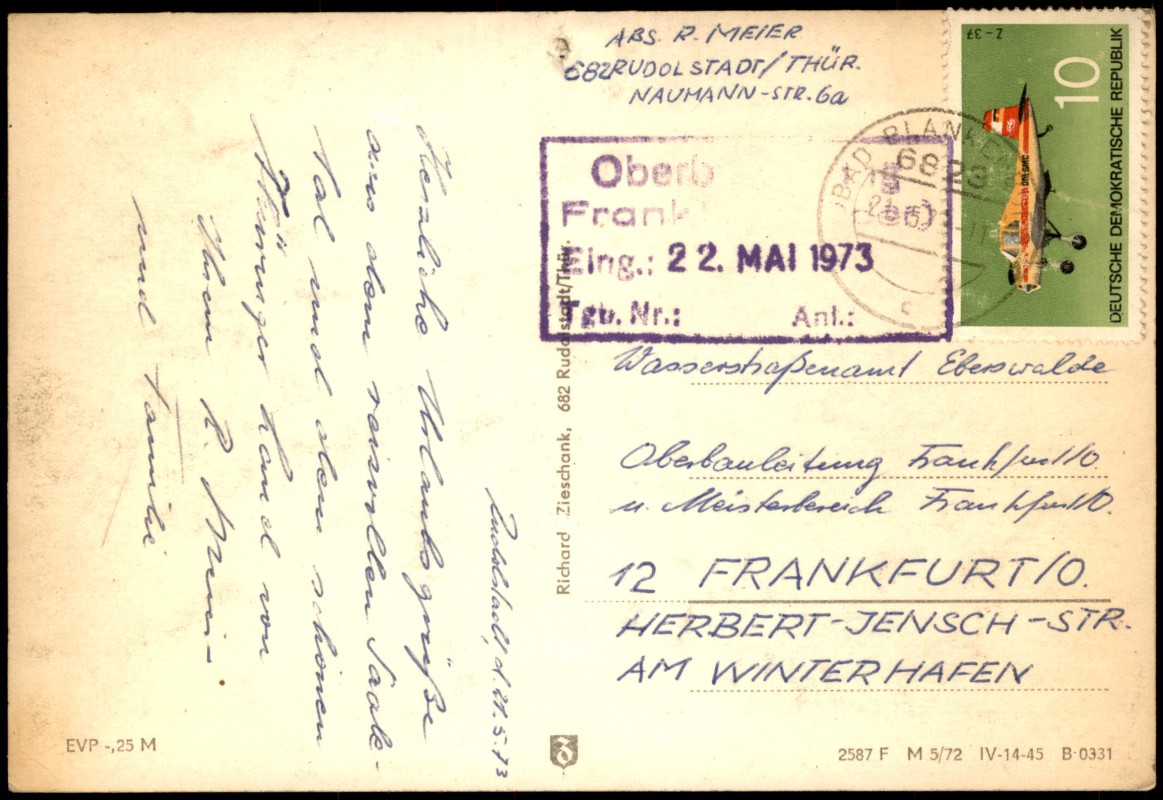 ABS. R. MEIER
682 RUDOLSTADT/THÜR.
NAUMANN-STR. 6a
Z-37
10
DEUTSCHE DEMOKRATISCHE REPUBLIK
BAD BLANKEN
6823
21.-5.73-11
c
Oberb
Frank
Eing.: 22. MAI 1973
Tgb. Nr.: Anl.:
Wasserstraßenamt Eberswalde
Oberbauleitung Frankfurt/O.
u. Meisterbereich Frankfurt/O.
12 FRANKFURT/O.
HERBERT-JENSCH-STR.
AM WINTERHAFEN
Rudolstadt, d. 21.5.73
Herzliche Urlaubsgrüße
aus dem reizvollen Saale-
tal und dem schönen
Thüringer Land von
Ihrem R. Meier
und Familie
Richard Zieschank, 682 Rudolstadt/Thür.
EVP -,25 M
2587 F M 5/72 IV-14-45 B·0331